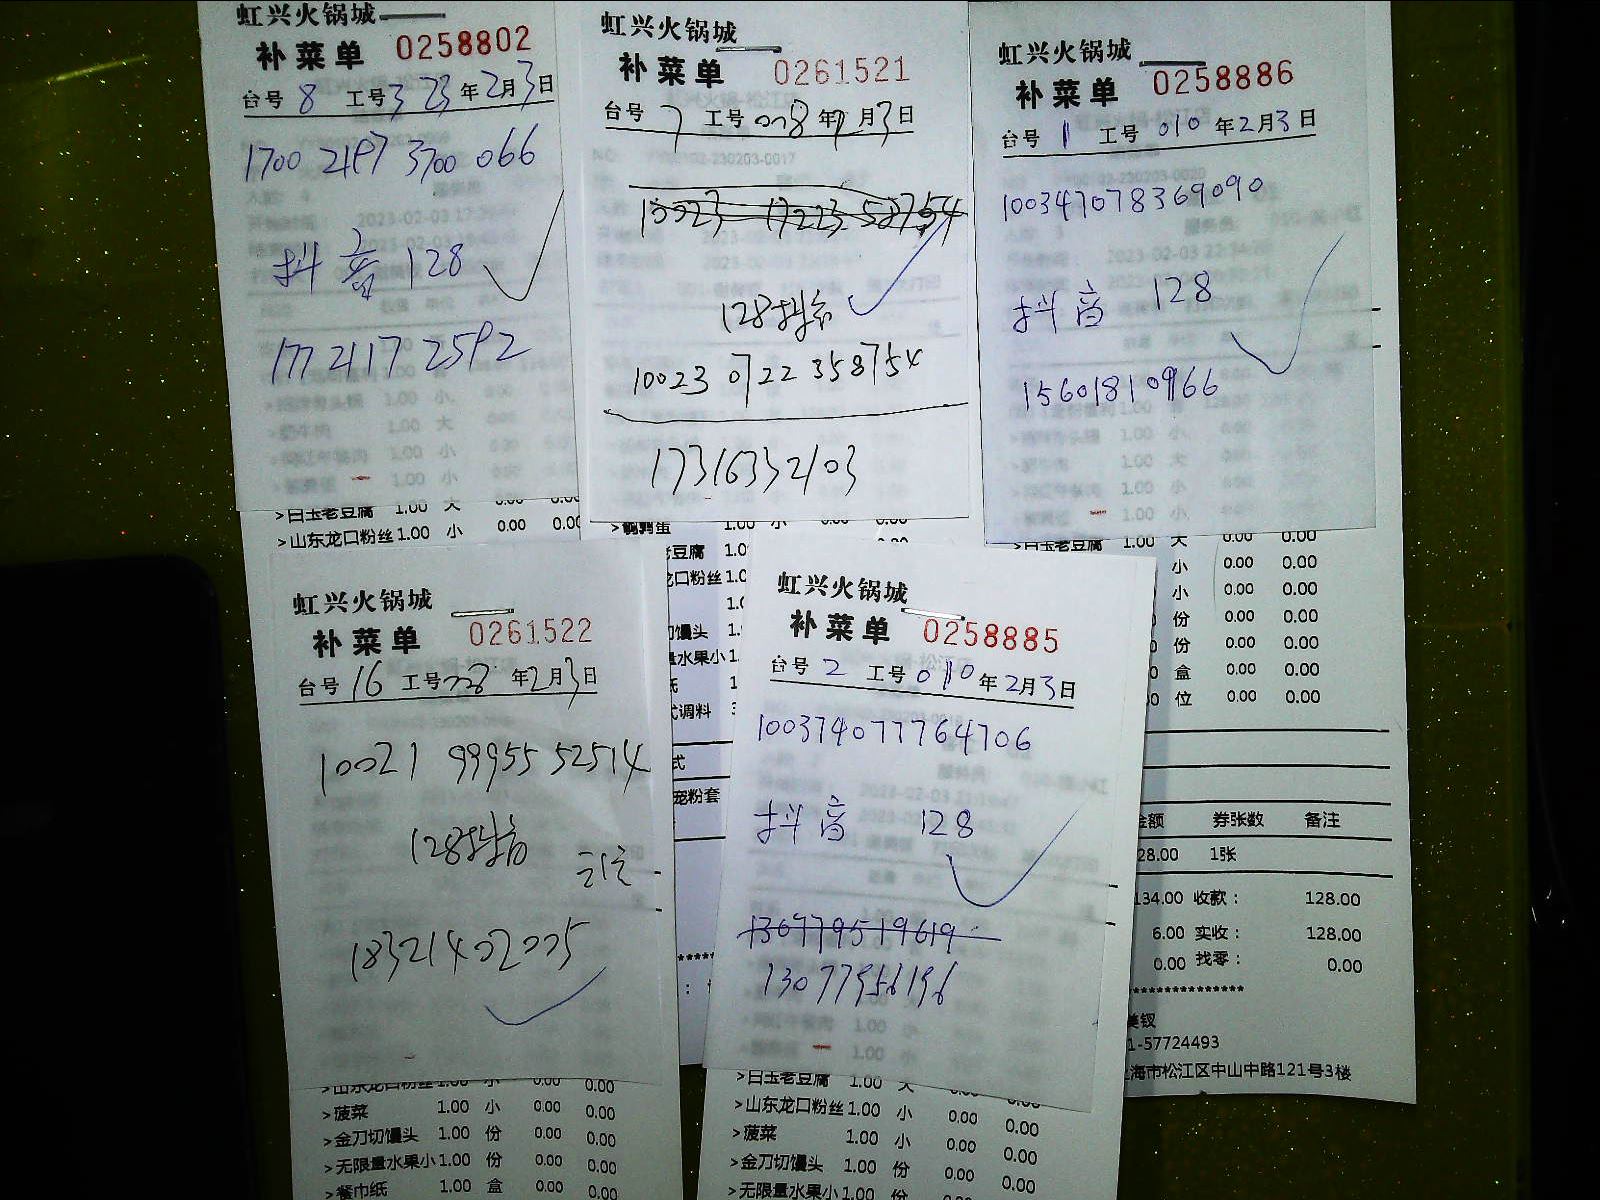 虹兴火锅城
补菜单 0258802
台号 8 工号3 23年2月3日
1700 2197 3700 066
抖音128
177 2117 2592
>白玉老豆腐 1.00 大 0.00 0.00
>山东龙口粉丝1.00 小 0.00 0.00
虹兴火锅城
补菜单 0261521
台号 7 工号008年2月3日
128抖音
10023 0722 358754
17316332103
>鹌鹑蛋 1.00 小 0.00 0.00
老豆腐 1.0
龙口粉丝1.0
1.0
切馒头 1.
量水果小1.
纸 1
式调料 3
式
宠粉套
虹兴火锅城
补菜单 0258886
台号 1 工号 010 年2月3日
100347078369090
抖音 128
15601810966
>白玉老豆腐 1.00 大 0.00 0.00
小 0.00 0.00
小 0.00 0.00
份 0.00 0.00
份 0.00 0.00
盒 0.00 0.00
位 0.00 0.00
金额 券张数 备注
28.00 1张
134.00 收款: 128.00
6.00 实收: 128.00
0.00 找零: 0.00
***************
美钗
1-57724493
上海市松江区中山中路121号3楼
虹兴火锅城
补菜单 0261522
台号 16 工号008 年2月3日
10021 99955 52514
128抖音
18321402005
>山东龙口粉丝1.00 小 0.00 0.00
>菠菜 1.00 小 0.00 0.00
>金刀切馒头 1.00 份 0.00 0.00
>无限量水果小1.00 份 0.00 0.00
>餐巾纸 1.00 盒 0.00 0.00
虹兴火锅城
补菜单 0258885
台号 2 工号 010 年2月3日
100374077764706
抖音 128
130779519619
13077956196
>白玉老豆腐 1.00 大 0.00 0.00
>山东龙口粉丝1.00 小 0.00 0.00
>菠菜 1.00 小 0.00 0.00
>金刀切馒头 1.00 份 0.00 0.00
>无限量水果小1.00 份 0.00 0.00